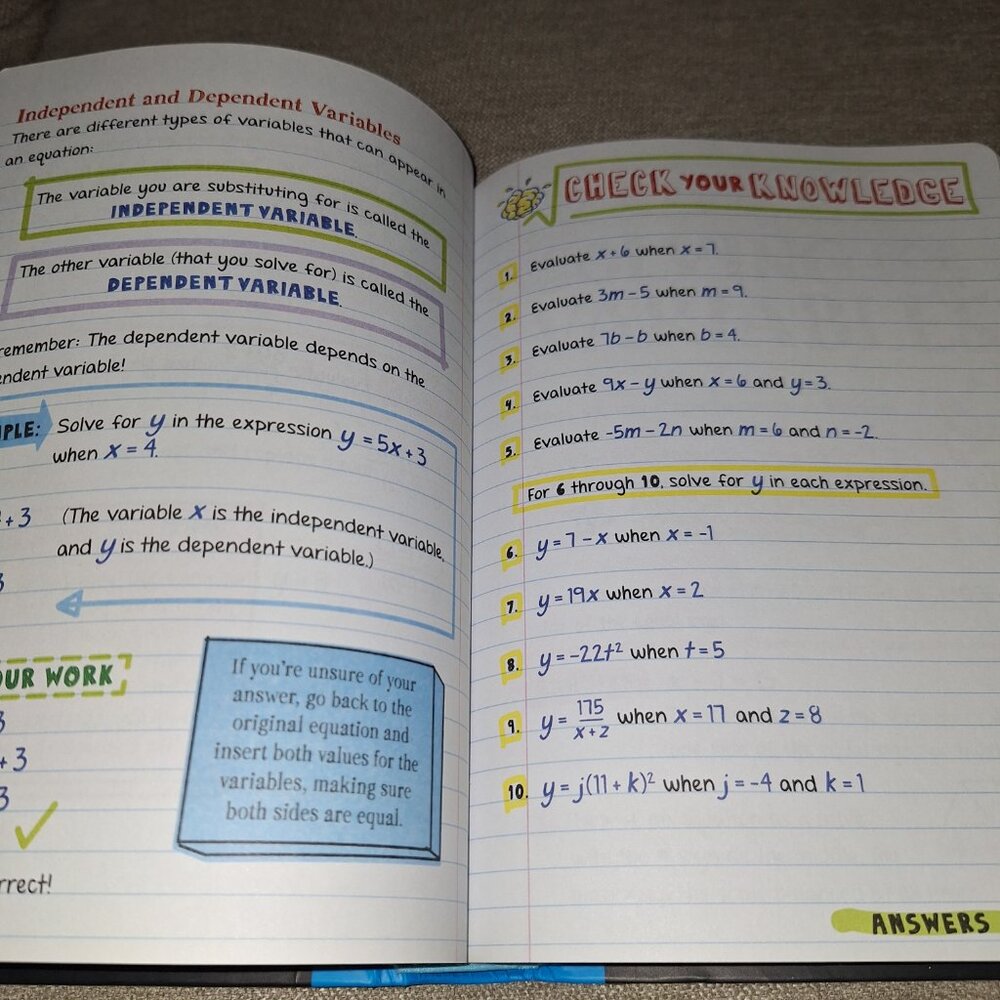 Independent and Dependent Variables
There are different types of variables that can appear in
an equation:
The variable you are substituting for is called the
INDEPENDENT VARIABLE.
The other variable (that you solve for) is called the
DEPENDENT VARIABLE.
remember: The dependent variable depends on the
variable!
Solve for y in the expression y = 5x + 3
when x = 4.
+ 3 (The variable x is the independent variable,
and y is the dependent variable.)
WORK
3
+ 3
3
If you're unsure of your
answer, go back to the
original equation and
insert both values for the
variables, making sure
both sides are equal.
CHECK YOUR KNOWLEDGE
1. Evaluate x + 6 when x = 7.
2. Evaluate 3m - 5 when m = 9.
3. Evaluate 7b - b when b = 4.
4. Evaluate 9x - y when x = 6 and y = 3.
5. Evaluate -5m - 2n when m = 6 and n = -2.
For 6 through 10, solve for y in each expression.
6. y = 7 - x when x = -1
7. y = 19x when x = 2
8. y = -22t² when t = 5
9. y = 175/x + z when x = 17 and z = 8
10. y = j(11 + k)² when j = -4 and k = 1
ANSWERS